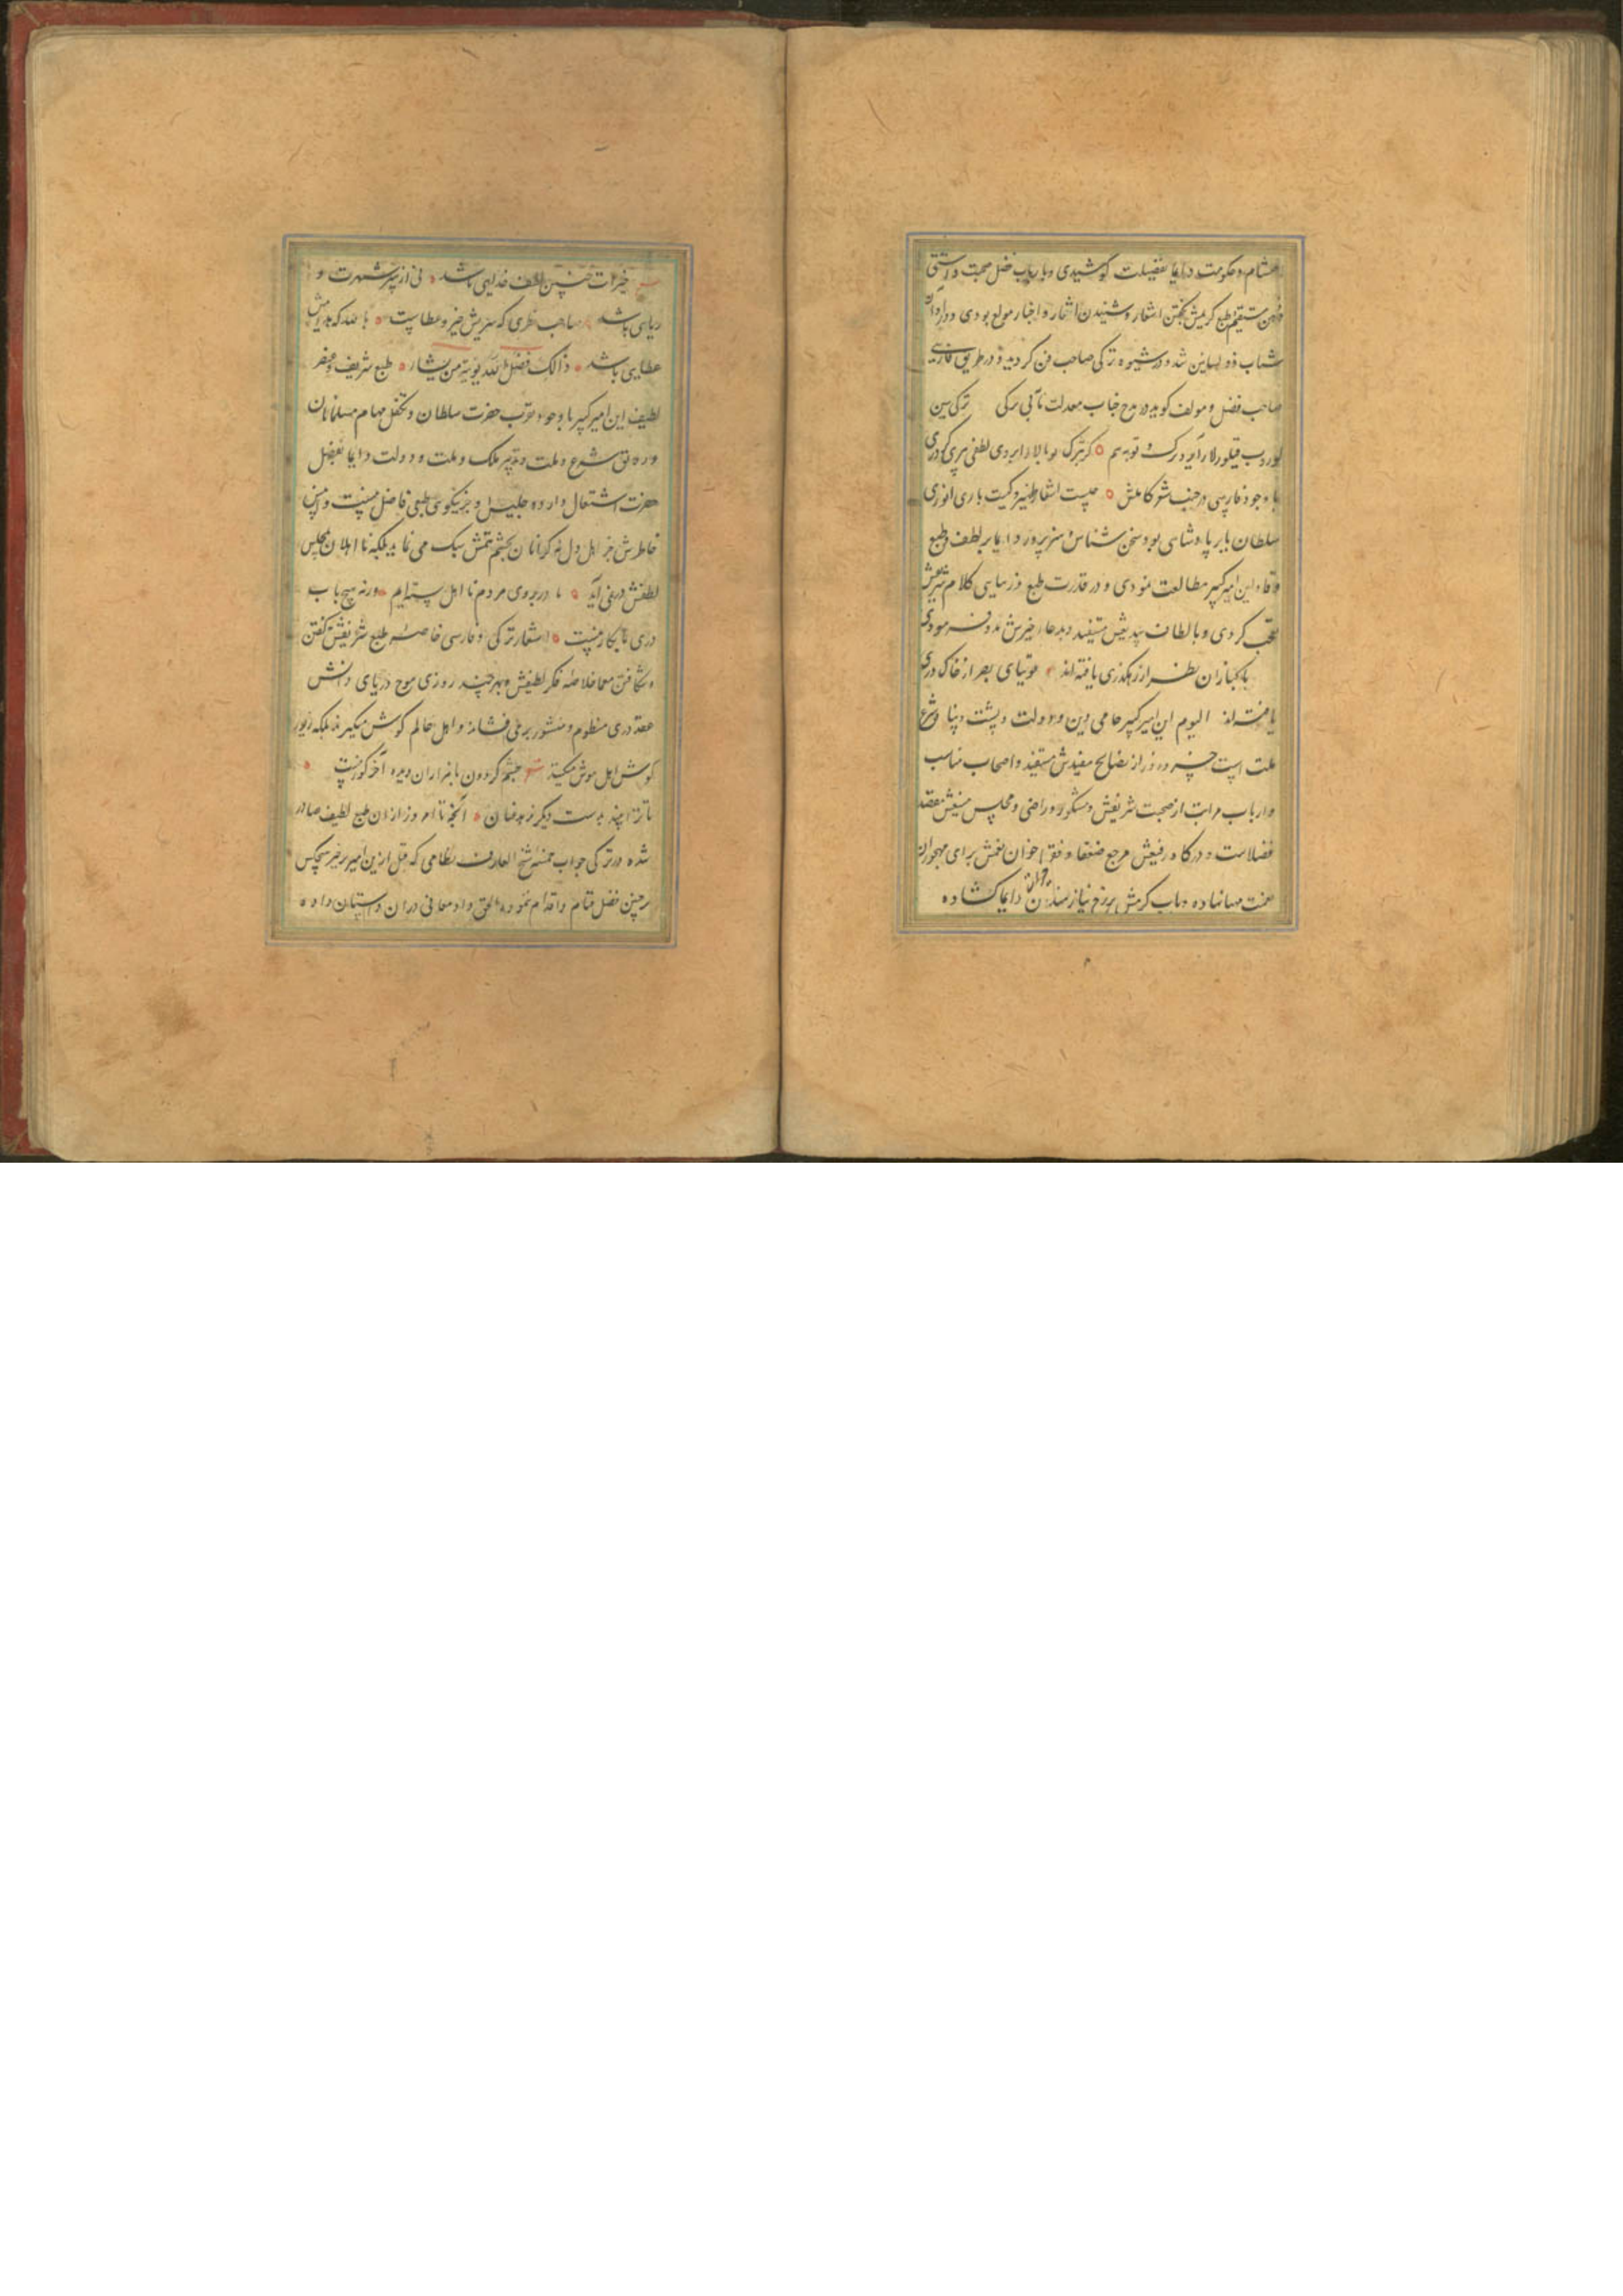 احتشام و حکومت دایما بفضیلت کوشیدی و با ارباب فضل صحبت داشتی
ذهن مستقیم طبع کریمش بگفتن اشعار و شنیدن اشعار و اخبار مولع بودی و در اوان
شباب ذو لسانین شد و در شیوه ترکی صاحب فن کردید و در طریق فارسی
صاحب فضل و مولف کوید در مدح جناب معدلت مآبی ترکی ترکی سین
کوروب قیلورلار توبه هم کر ترک بو بالالار ایردی لطفی بیری کردری
با وجود فارسی در جنب شعر کاملش چیست اشعار ظهیر و کیست باری انوری
سلطان بابر پادشاهی بود سخن شناس و هنرپرور دایما بر لطف طبع
وقاد این امیر کبیر مطالعت نمودی و در قدرت طبع و زیبایی کلام شیرینش
تعجب کردی و بالطان پدریش مستفید و بدعاء خیرش مدد فرمودی
پاکبازان نظر از رهکذری یافته اند توتیای بصر از خاک دری
یافته اند الیوم این امیر کبیر حامی دین و دولت و پشت و پناه شرع
ملت است خسرو روز از نصایح مفیدش مستفید و اصحاب مناصب
و ارباب مراتب از صحبت شریفش مشکور و راضی و مجلس منیفش مقصد
فضلاست و درکاه رفیعش مرجع ضعفا و فقرا خوان نعمتش برای مهجوران
نعمت مهیا نهاده و باب کرمش بر رخ نیازمندان دایما کشاده
خیرات چنین لطف خدایی باشد نی از پی شهرت و
ریایی باشد صاحب نظری که سیرتش خیر و عطاست بالله که بدانش
عطایی باشد ذالک فضل الله یؤتیه من یشاء طبع شریف و عنصر
لطیف این امیر کبیر با وجود تقرب حضرت سلطان و تکفل مهام مسلمانان
و رونق شرع و ملت و تدبیر ملک و ملت و دولت دایما بفضل
حضرت اشتغال دارد و جلیس او جز نیکوی طبعی فاضل نیست و انیس
خاطرش جز اهل دل نه کرانان بچشم همتش سبک می نماید بلکه نااهلان بمجلس
لطفش در نمی آید ما در بروی مردم نااهل بسته ایم ورنه بهیچ باب
دری نابکار نیست اشعار ترکی و فارسی خاصه طبع شریفش کفتن
و شکافتن معما خلاصه فکر لطیفش و بهر چند روزی موج دریای دانش
عقد دری منظوم و منثور بر ملی فشاند و اهل عالم کوش میکیرند بلکه زیور
کوش اهل هوش میکند چشم کردون با هزاران دیده آخر کور نیست
تا ترا بیند بدست دیکر ندهد عنان آنچه تا امروز از آن طبع لطیف صادر
شده در ترکی جواب خمسه شیخ العارف نظامی که قبل ازین امیر بر خیر هیچکس
بر چنین فضل قیام و اقدام ننموده الحق داد معانی در آن داستان داده